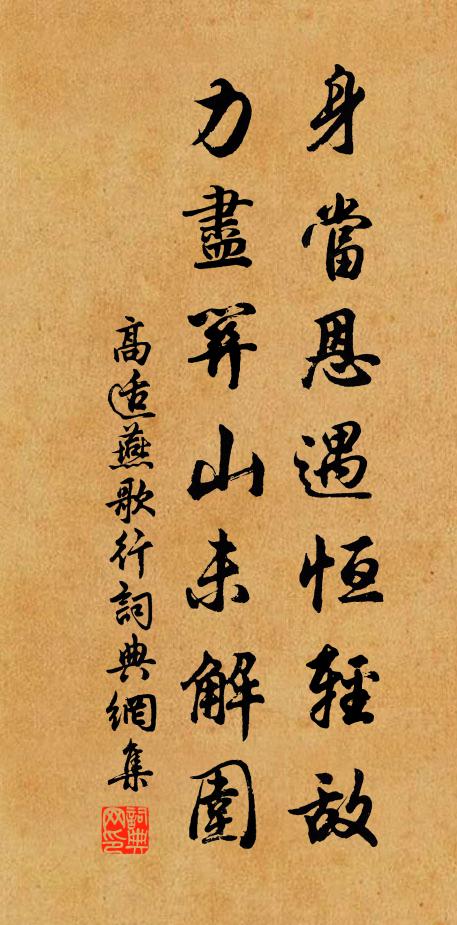 身當恩遇恒輕敌
力盡関山未解圍
高适燕歌行詞典網集
詞典网印